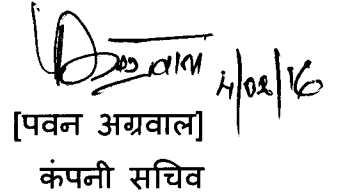 4/02/16
[पवन अग्रवाल]
कंपनी सचिव